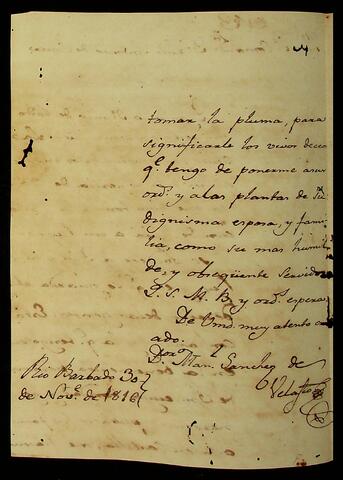 tomar la pluma, para
significarle los vivos deceo
q.e tengo de ponerme a sus
ord.s y a las plantas de su
dignisima esposa, y fami
lia, como su mas humil
de, y obsequente servidor
Q. S. M. B. y ord.s espera
De Vmd. muy atento cri
ado.
D.n Man.l Sanchez de
Velasco
Rio Barbado 30
de Nov.e de 1816